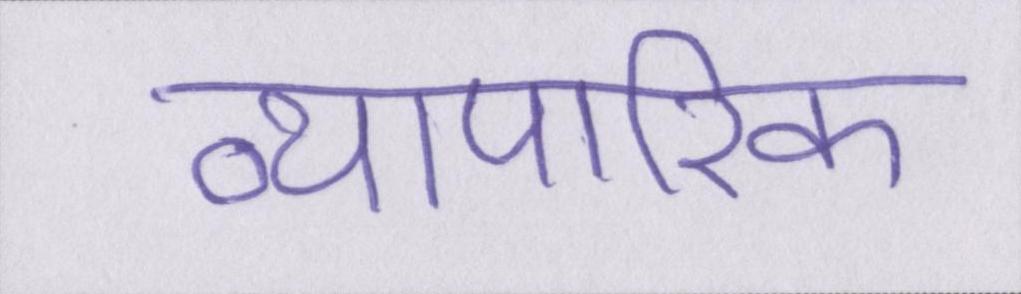 व्यापारिक